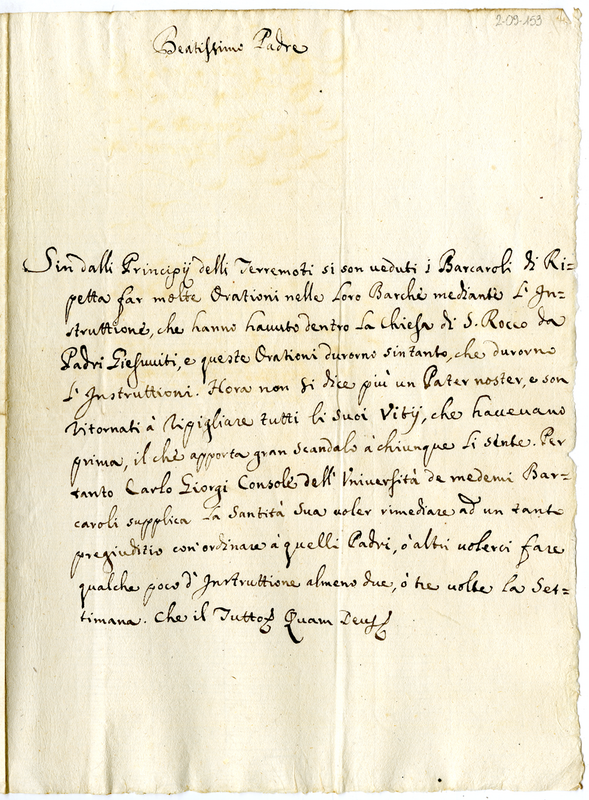 2-09-153
Beatissimo Padre
Sin dalli Principij delli Terremoti si son veduti i Barcaroli di Ri=
petta far molte Orationi nelle Loro Barche mediante L'In=
struttione, che hanno havuto dentro La Chiesa di S. Rocco da
Padri Giesuviti, e queste Orationi durorno sin tanto, che durorno
L'Instruttioni. Hora non si dice più un Pater noster, e son
ritornati à ripigliare tutti li suoi Vitij, che havevano
prima, il che apporta gran scandalo à chiunque li sente. Per
tanto Carlo Giorgi Console dell'Università de medemi Bar=
caroli supplica La Santità Sua voler rimediare ad un tanto
pregiuditio con'ordinare à quelli Padri, ò altri volerci fare
qualche poco d'Instruttione almeno due, ò tre volte La Set=
timana. Che il Tutto Quam Deus